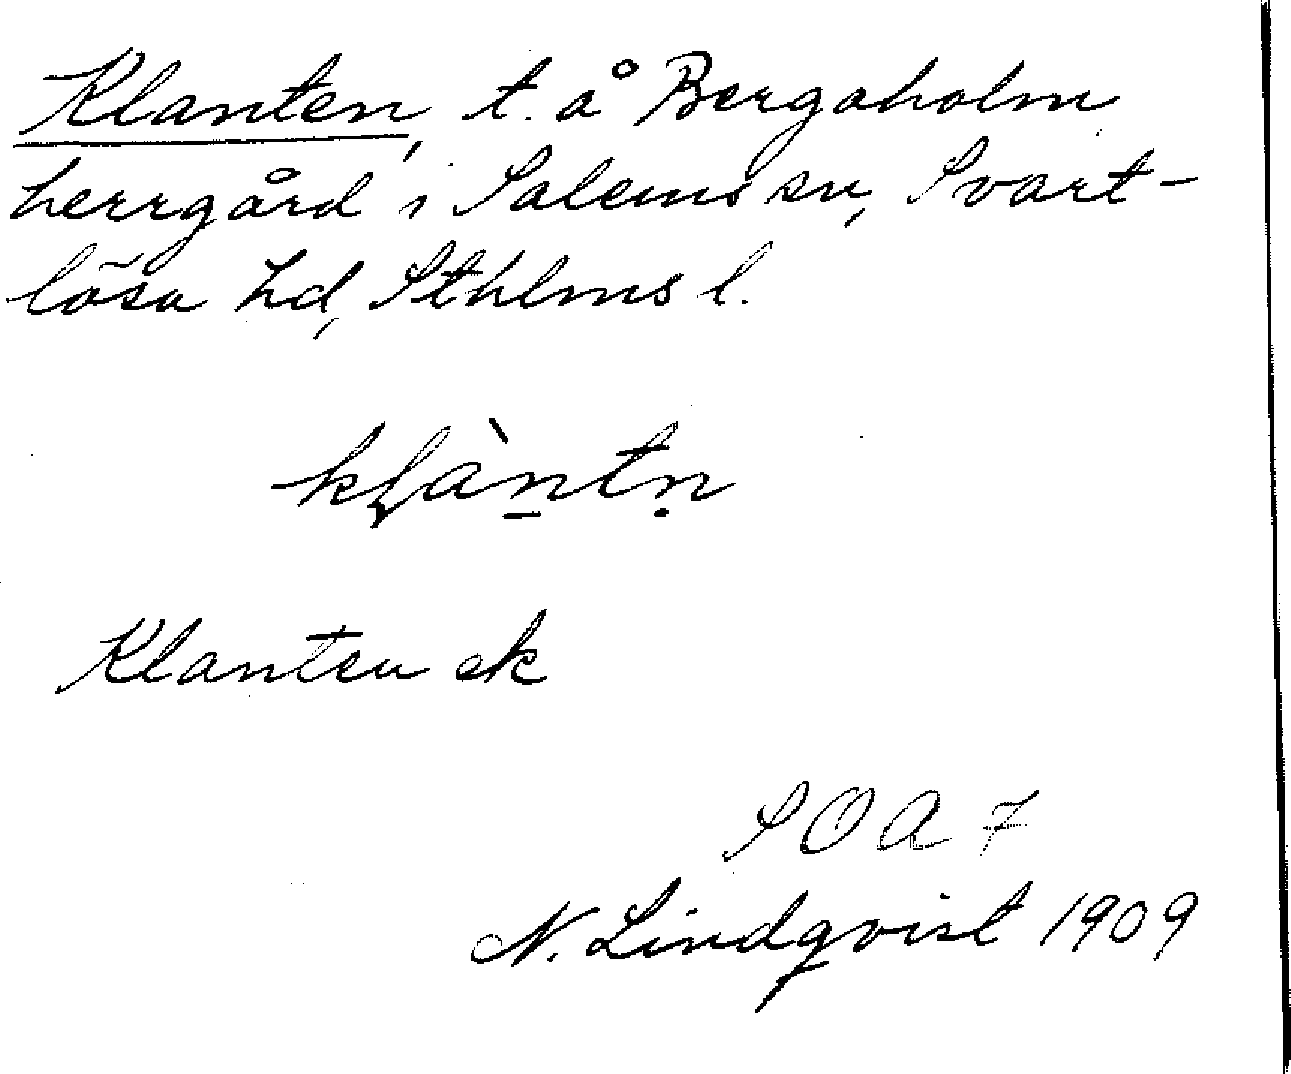 Klanten, t. å Bergaholm
herrgård i Salems sn, Svart-
lösa hd, Sthlms l.
kḷàn̠tṇ
Klanten ek
SOA 7
N. Lindqvist 1909